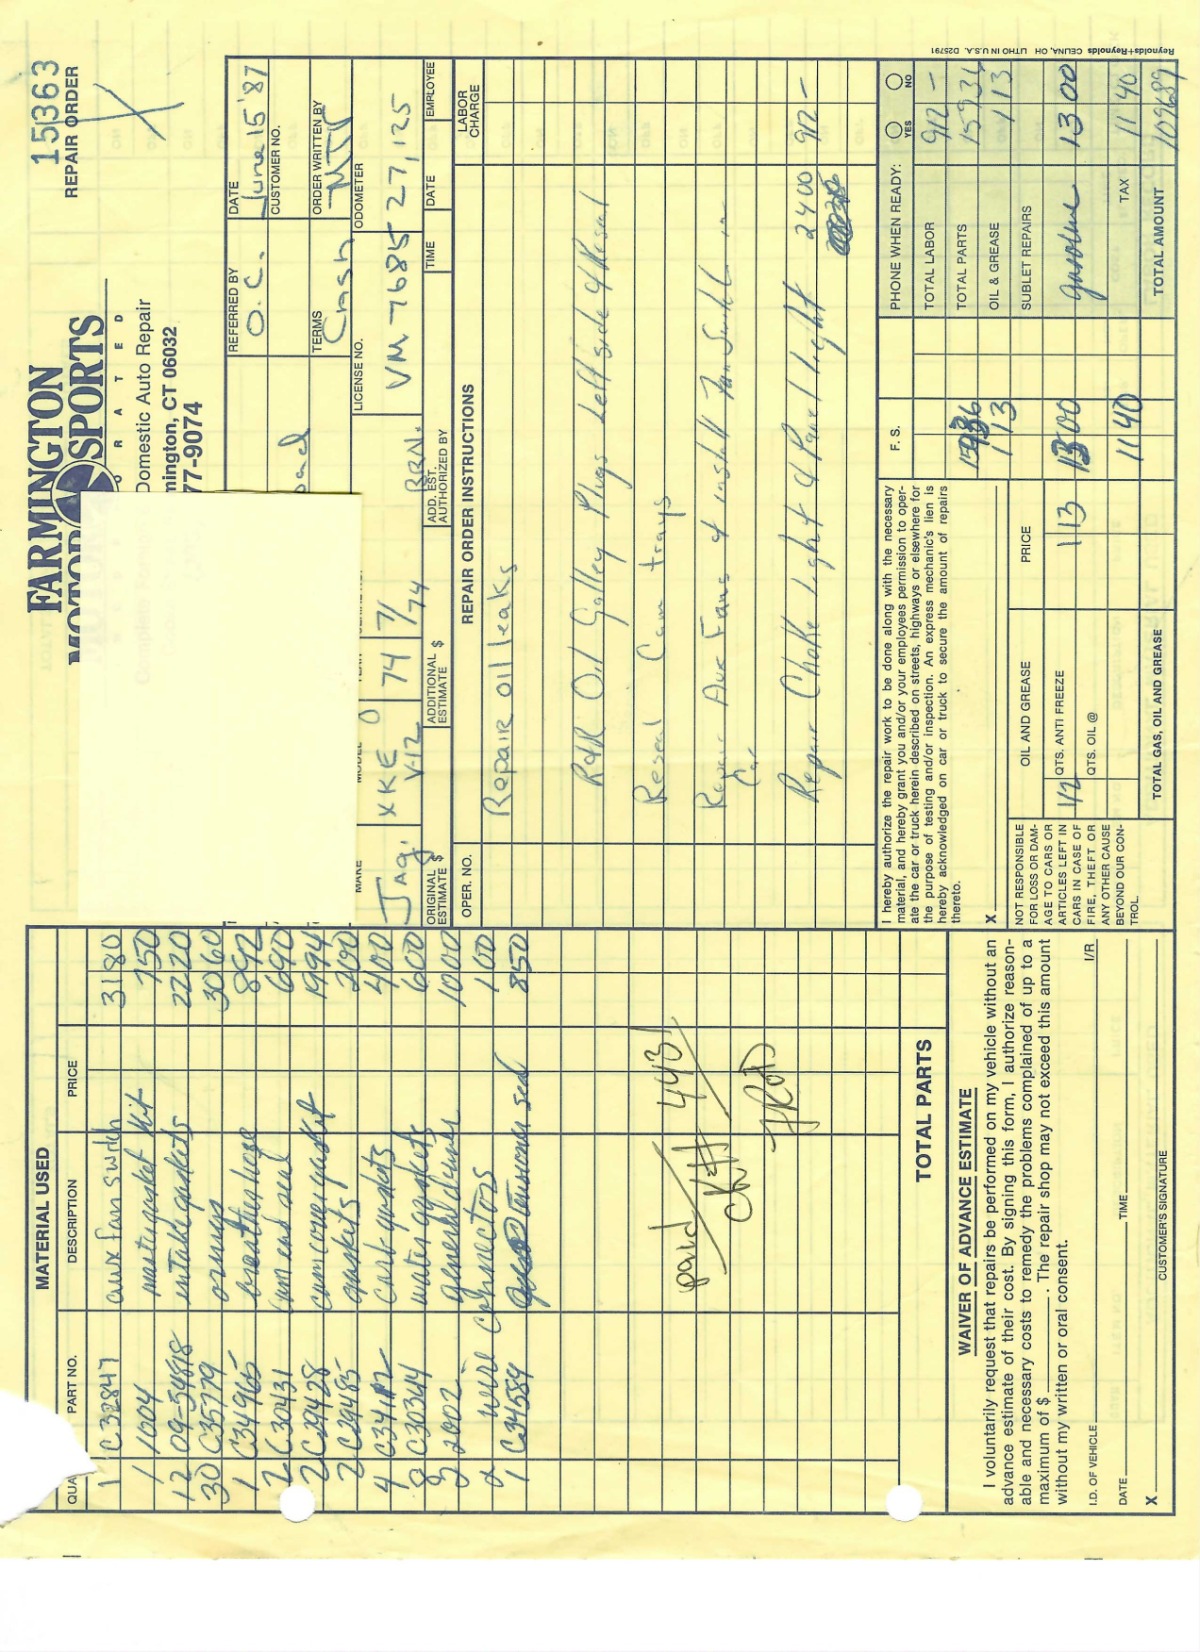 15363
REPAIR ORDER
FARMINGTON
MOTOR SPORTS
O R A T E D
Domestic Auto Repair
mington, CT 06032
77-9074
REFERRED BY
O.C.
DATE
June 15 '87
CUSTOMER NO.
TERMS
Cash
ORDER WRITTEN BY
MAKE
Jag.
XKE
V-12
74
7/74
BRN.
LICENSE NO.
VM 7685
ODOMETER
27,125
ORIGINAL ESTIMATE $
ADDITIONAL ESTIMATE $
ADD. EST. AUTHORIZED BY
TIME
DATE
EMPLOYEE
OPER. NO.
REPAIR ORDER INSTRUCTIONS
LABOR CHARGE
Repair oil leaks
R&R Oil Galley Plugs Left side & Reseal
Reseal Cam trays
Repair Aux Fans & install Fan Switch in
Car
Repair Choke light & Panel light 2400 912 -
MATERIAL USED
QUA PART NO. DESCRIPTION PRICE
1 C32847 aux fan switch 31 80
1 1004 master gasket kit 7 50
12 09-54818 intake gaskets 22 20
30 C35779 orings 30 60
1 C34965 breather hose 8 92
2 C30431 cam end seal 6 90
2 C29428 cam cover gasket 19 94
2 C29485 gaskets 2 00
4 C34112 carb gaskets 4 00
8 C30344 water gaskets 6 00
2 2002 10 00
2 wire connectors 1 00
1 C34584 tensioner seal 8 50
paid
ck# 4431
TOTAL PARTS
WAIVER OF ADVANCE ESTIMATE
I voluntarily request that repairs be performed on my vehicle without an
advance estimate of their cost. By signing this form, I authorize reason-
able and necessary costs to remedy the problems complained of up to a
maximum of $ ______. The repair shop may not exceed this amount
without my written or oral consent.
I.D. OF VEHICLE I/R
DATE TIME
X
CUSTOMER'S SIGNATURE
I hereby authorize the repair work to be done along with the necessary
material, and hereby grant you and/or your employees permission to oper-
ate the car or truck herein described on streets, highways or elsewhere for
the purpose of testing and/or inspection. An express mechanic's lien is
hereby acknowledged on car or truck to secure the amount of repairs
thereto.
X
NOT RESPONSIBLE
FOR LOSS OR DAM-
AGE TO CARS OR
ARTICLES LEFT IN
CARS IN CASE OF
FIRE, THEFT OR
ANY OTHER CAUSE
BEYOND OUR CON-
TROL.
OIL AND GREASE PRICE
1/2 QTS. ANTI FREEZE 1 13
QTS. OIL @
TOTAL GAS, OIL AND GREASE
F. S.
1 13
13 00
11 40
PHONE WHEN READY: YES NO
TOTAL LABOR 912 -
TOTAL PARTS 159 36
OIL & GREASE 1 13
SUBLET REPAIRS
gasoline 13 00
TAX 11 40
TOTAL AMOUNT 1096 89
Reynolds+Reynolds CELINA, OH LITHO IN U.S.A. D25791